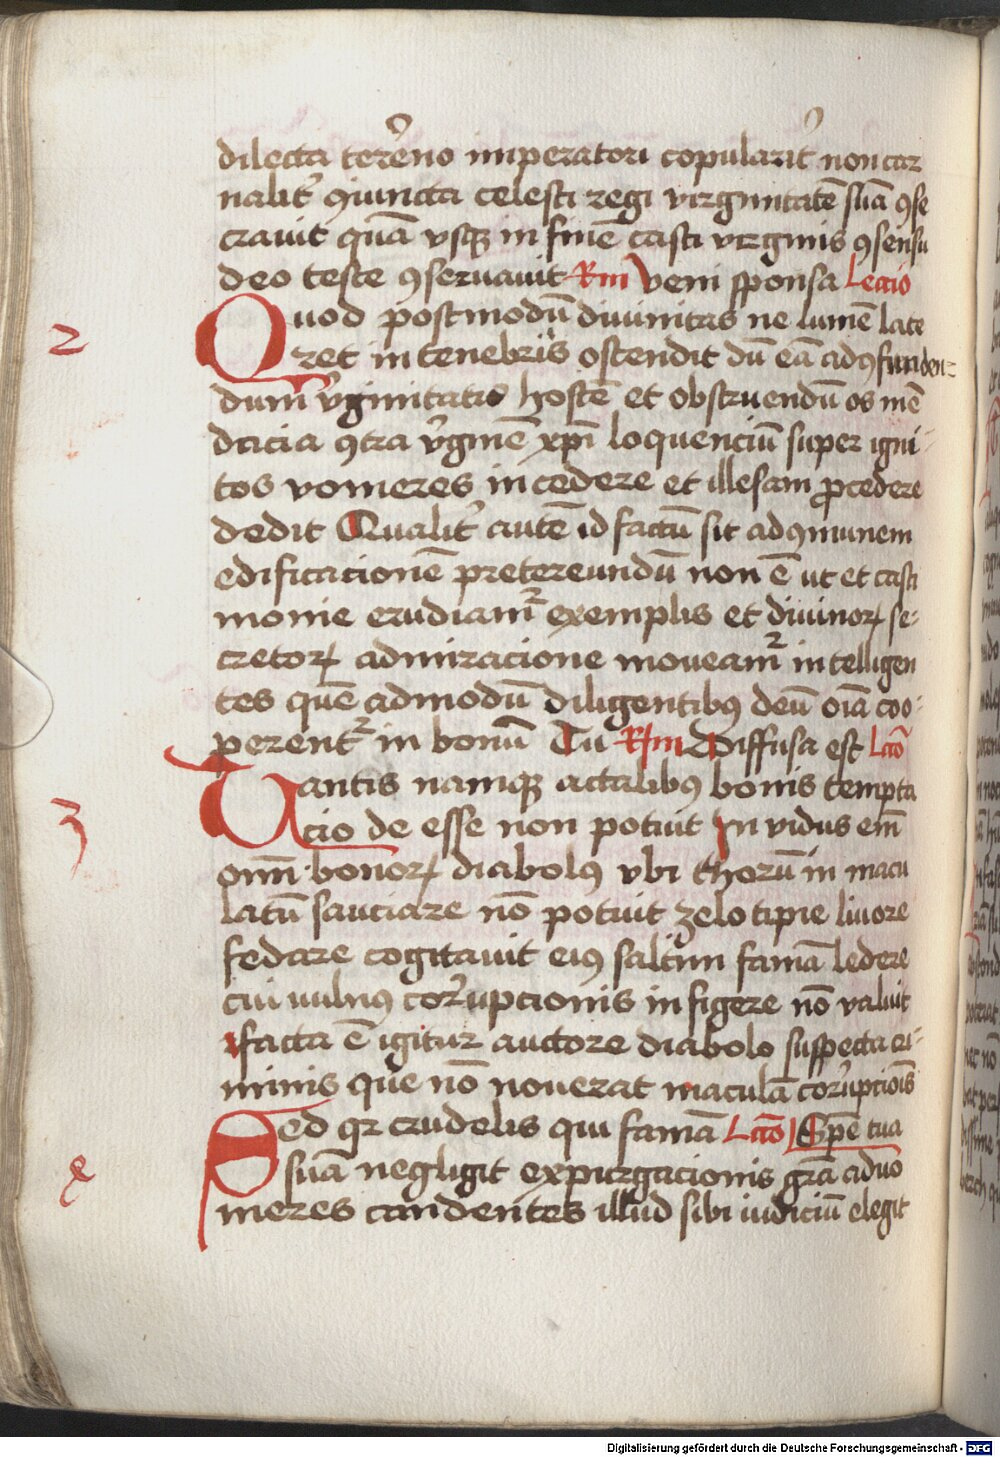 dilecta terr̄eno imperatori copularit̉ non car
nalit̉ ꝯiuncta celesti regi virginitatē suā ꝯse
crauit quā vsqꝫ in finē casti virginis ꝯsensu
deo teste ꝯseruauit Rm̄ Veni sponsa Leccio
2
Quod postmodū diuinitas ne lumē late
ret in tenebris ostendit dū eā adꝯfunden⸗
dum v̉ginitatis hostē et obstruendū os mē
dacia ꝯtra v̉ginē xp̄i loquenciū super igni⸗
tos vomeres incedere et illesam ꝓcedere
dedit Qualit̉ autē id factū sit adꝯmunem
edificacionē pretereundū non ē ut et casti
monie erudiamᷣ exemplis et diuinoꝝ se⸗
cretoꝝ admiracione moueamᷣ intelligen
tes quē admodū diligentibꝰ deū oīa coo⸗
perentᷣ in bonū Tu Rm̄ Diffusa est Lc̄o
3
Tantis namqꝫ actalibꝰ bonis tempta
cio de esse non potuit In vidus em̄
om̄i bonoꝝ diabolꝰ vbi thorū in macu
latū sauciare nō potuit zelotipie liuore
fedare cogitauit eiꝰ saltim famā ledere
cui vulnꝰ corrupcionis infigere nō valuit
ifacta ē igitur auctore diabolo suspecta cri⸗
minis que nō nouerat maculā corrupcioīs
Sed qꝛ crudelis qui famā Lc̄o Spē tua
suā negligit expurgacionis grā ad uo
meres candentes illud sibi iudiciū elegit
Digitalisierung gefördert durch die Deutsche Forschungsgemeinschaft - DFG